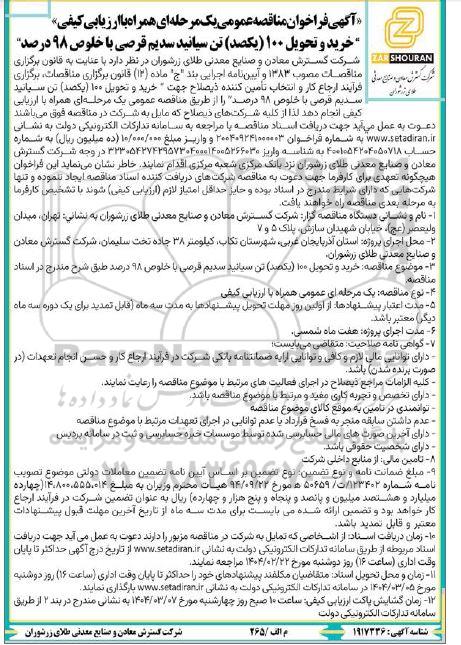 «آگهی فراخوان مناقصه عمومی یک مرحله‌ای همراه با ارزیابی کیفی»
“ خرید و تحویل ۱۰۰ (یکصد) تن سیانید سدیم قرصی با خلوص ۹۸ درصد”
ZAR SHOURAN
شرکت گسترش معادن و صنایع معدنی
طلای زرشوران
شرکت گسترش معادن و صنایع معدنی طلای زرشوران در نظر دارد با عنایت به قانون برگزاری
مناقصات مصوب ۱۳۸۳ و آیین‌نامه اجرایی بند "ج" ماده (۱۲) قانون برگزاری مناقصات، برگزاری
فرآیند ارجاع کار و انتخاب تأمین کننده ذیصلاح جهت “ خرید و تحویل ۱۰۰ (یکصد) تن سیانید
سدیم قرصی با خلوص ۹۸ درصد” را از طریق مناقصه عمومی یک مرحله‌ای همراه با ارزیابی
کیفی انجام دهد لذا از کلیه شرکت‌های ذیصلاح که مایل به شرکت در مناقصه فوق می‌باشند
دعوت به عمل می‌آید جهت دریافت اسناد مناقصه با مراجعه به سامانه تدارکات الکترونیکی دولت به نشانی
www.setadiran.ir به شماره فراخوان ۲۰۰۴۰۹۲۹۱۰۰۰۰۰۳ و واریز مبلغ ۱۰/۰۰۰/۰۰۰ (ده میلیون ریال) به شماره
حساب ۴۰۰۱۰۵۴۲۰۴۰۵۰۷۱۸ به شناسه واریز در وجه شرکت گسترش
معادن و صنایع معدنی طلای زرشوران نزد بانک مرکزی شعبه مرکزی اقدام نمایند. خاطر نشان می‌نماید این فراخوان
هیچگونه تعهدی برای کارفرما جهت دعوت به مناقصه شرکت‌های دریافت کننده اسناد مناقصه ایجاد ننموده و تنها
شرکت‌هایی که دارای شرایط مندرج در اسناد بوده و حایز حداقل امتیاز لازم (ارزیابی کیفی) شوند با تشخیص کارفرما
به مرحله بعدی مناقصه راه خواهند یافت.
۱- نام و نشانی دستگاه مناقصه گزار: شرکت گسترش معادن و صنایع معدنی طلای زرشوران به نشانی: تهران، میدان
ولیعصر (عج)، خیابان شهیدان سازش، پلاک ۵ و ۷
۲- محل اجرای پروژه: استان آذربایجان غربی، شهرستان تکاب، کیلومتر ۳۸ جاده تخت سلیمان، شرکت گسترش معادن
و صنایع معدنی طلای زرشوران،
۳- موضوع مناقصه: خرید و تحویل ۱۰۰ (یکصد) تن سیانید سدیم قرصی با خلوص ۹۸ درصد طبق شرح مندرج در اسناد
مناقصه.
۴- نوع مناقصه: یک مرحله ای عمومی همراه با ارزیابی کیفی
۵- مدت اعتبار پیشنهادها: از آخرین روز مهلت تحویل پیشنهادها به مدت سه ماه (قابل تمدید برای یک دوره سه ماه
دیگر) معتبر باشد.
۶- مدت اجرای پروژه: هفت ماه شمسی.
۷- گواهی نامه صلاحیت: متقاضی می‌بایست؛
- دارای توانایی مالی لازم و کافی و توانایی ارایه ضمانتنامه بانکی شرکت در فرآیند ارجاع کار و حسن انجام تعهدات (در
صورت برنده شدن) باشد.
- کلیه الزامات مراجع ذیصلاح در اجرای فعالیت های مرتبط با موضوع مناقصه را رعایت نمایند.
- دارای تخصص و تجربه کاری مفید و مرتبط با موضوع مناقصه باشد.
- توانمندی در تامین به موقع کالای موضوع مناقصه
- عدم داشتن سابقه منجر به فسخ قرارداد یا عدم توانایی در اجرای تعهدات مرتبط با موضوع مناقصه
- دارای آخرین صورت های مالی حسابرسی شده توسط موسسات خبره حسابرسی و ثبت در سامانه پردیس
- دارای شخصیت حقوقی باشد.
۸- تامین مالی: از منابع داخلی شرکت
۹- مبلغ ضمانت نامه و نوع تضمین: نوع تضمین بر اساس آیین نامه تضمین معاملات دولتی موضوع تصویب
نامه شماره ۱۲۳۴۰۲/ت ۵۰۶۵۹ ه مورخ ۹۴/۰۹/۲۲ هیات محترم وزیران به مبلغ (چهارده
میلیارد و هشتصد میلیون و پانصد و پنجاه و پنج هزار و چهارده) ریال به عنوان تضمین شرکت در فرآیند ارجاع
کار خواهد بود و تضمین ارائه شده می بایست برای مدت سه ماه از تاریخ آخرین مهلت قبول پیشنهادات
معتبر و قابل تمدید باشد.
۱۰- زمان دریافت اسناد: از اشخاصی که تمایل به شرکت در مناقصه مزبور را دارند دعوت به عمل می آید جهت دریافت
اسناد مربوطه از طریق سامانه تدارکات الکترونیکی دولت به نشانی www.setadiran.ir از تاریخ درج آگهی حداکثر تا پایان
وقت اداری (ساعت ۱۶) روز دوشنبه مورخ ۱۴۰۴/۰۲/۲۲ مراجعه نمایند.
۱۱- زمان و محل تحویل اسناد: متقاضیان مکلفند پیشنهادهای خود را حداکثر تا پایان وقت اداری (ساعت ۱۶) روز دوشنبه
مورخ ۱۴۰۴/۰۳/۰۵ در سامانه تدارکات الکترونیکی دولت به نشانی www.setadiran.ir بارگذاری نمایند.
۱۲- زمان گشایش پاکت ارزیابی کیفی: ساعت ۱۰ صبح روز چهارشنبه مورخ ۱۴۰۴/۰۳/۰۷ به نشانی مندرج در بند ۲ از طریق
سامانه تدارکات الکترونیکی دولت
شناسه آگهی: ۱۹۱۷۳۳۶
م الف / ۲۶۵
شرکت گسترش معادن و صنایع معدنی طلای زرشوران